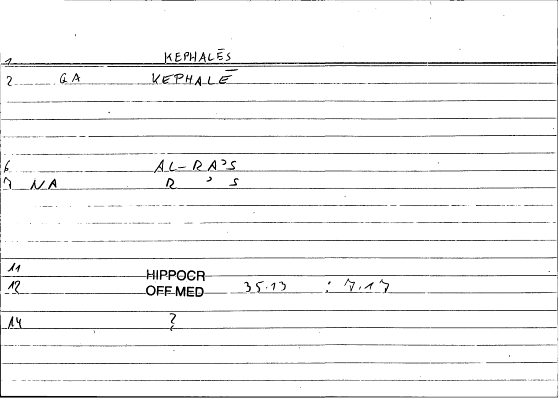 1 KEPHALĒS
2 GA KEPHALĒ
6 AL-RA'S
7 NA R ' S
11 HIPPOCR
12 OFF·MED 35.13 : 7.17
14 ?